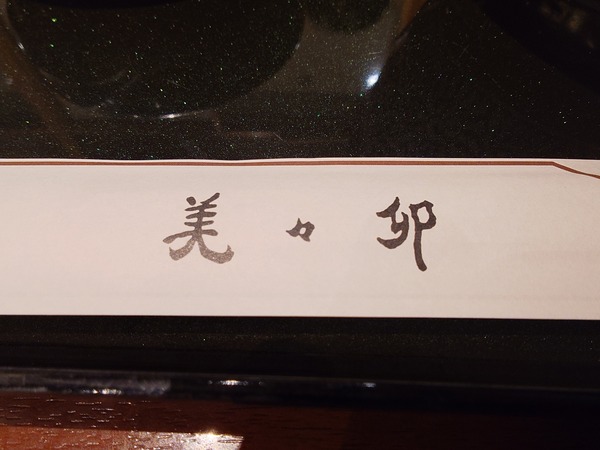 美々卯